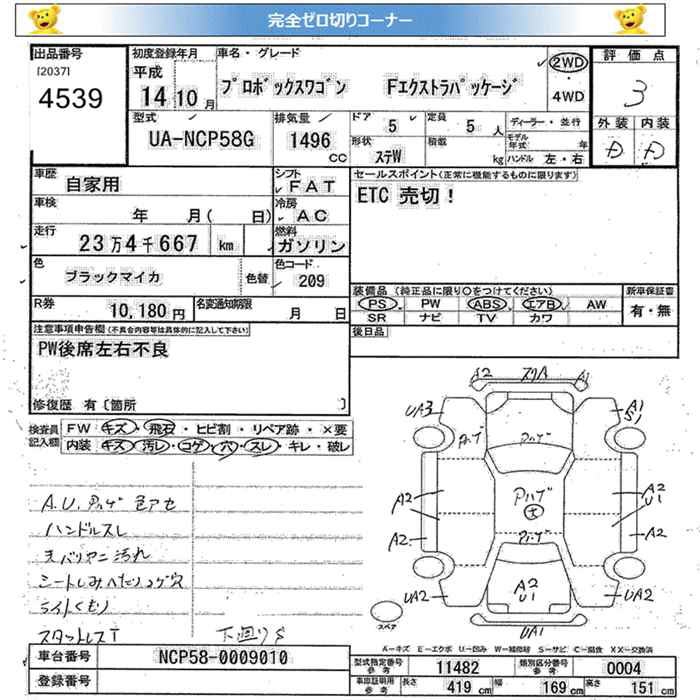 完全ゼロ切りコーナー
出品番号 初度登録年月 車名・グレード 評価点
[2037] 平成 2WD
4539 14 10 月 プロボックスワゴン Fエクストラパッケージ 4WD 3
型式 排気量 ドア 定員 ディーラー・並行 外装 内装
UA-NCP58G 1496 CC 5 5 人 モデル年式 年 D D
形状 ステW 積載 kg ハンドル 左・右
車歴 自家用 シフト FAT セールスポイント(正常に機能するものに限ります)
車検 年 月( 日) 冷房 AC ETC 売切!
走行 23万4千667 km 燃料 ガソリン
色 ブラックマイカ 色替 色コード 209
装備品(純正品に限り○をつけてください) 新車保証書
R券 10,180円 名変通知期限 月 日 PS PW ABS エアB AW 有・無
SR ナビ TV カワ
注意事項申告欄(不具合内容等は具体的に記入して下さい) 後日品
PW後席左右不良
修復歴 有〔箇所 〕
検査員記入欄 FW キズ・飛石・ヒビ割・リペア跡・×要
内装 キズ・汚レ・コゲ・穴・スレ・キレ・破レ
A2 スリA A1
UA3 A1 S1
ハゲ ハゲ
A.U.ハゲ 色アセ
ハンドルスレ
天バリアニ汚れ
A2 ハゲ A2 U1
A2 ハゲ A2
シートしみへたりコゲ穴
ライトくもり
UA2 A2 U1 UA2
スペア
スタッドレスT 下廻りS
UA1
A−キズ E−エクボ U−凹み W−補修跡 S−サビ C−腐食 XX−交換済
車台番号 NCP58-0009010 型式指定番号参考 11482 類別区分番号参考 0004
登録番号 車庫証明用参考 長さ 419 cm 幅 169 cm 高さ 151 cm